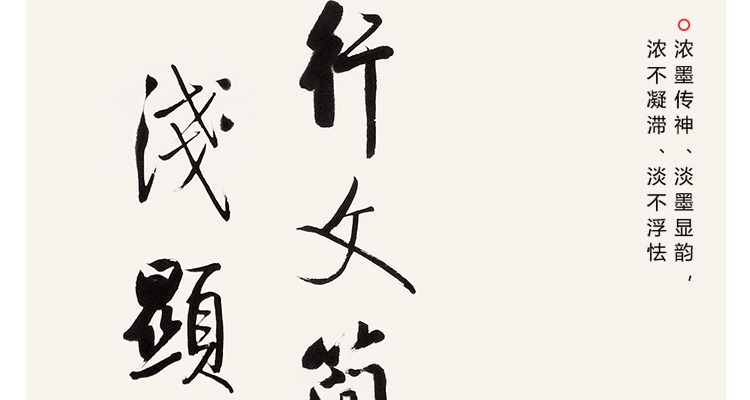 浓墨传神、淡墨显韵，
浓不凝滞、淡不浮怯
行文简
淺顯